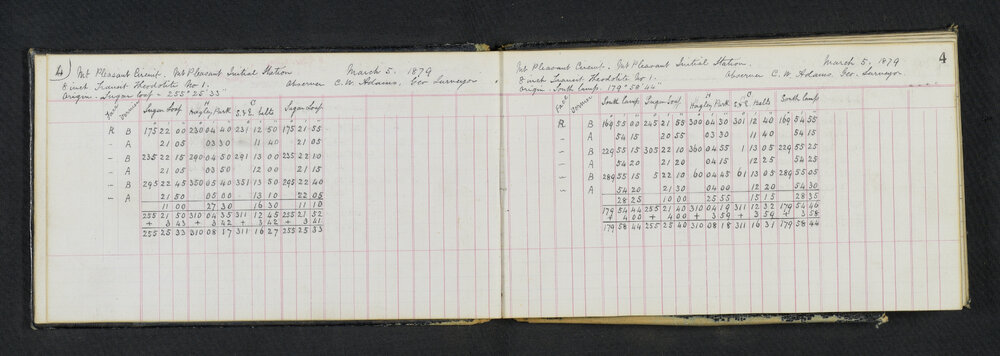 4) Mt Pleasant Circuit. Mt Pleasant Initial Station March 5. 1879
8 inch Transit Theodolite No 1. Observer C. W. Adams, Geo Surveyor
Origin. Sugar Loaf = 255° 25' 33"
Face Vernier Sugar Loaf Hagley Park Sugar Loaf
R B 175 22 00 230 04 40 231 12 50 175 21 55
A 21 05 03 30 11 40 21 05
– B 235 22 15 290 04 50 291 13 00 235 22 10
– A 21 05 03 50 12 00 21 15
– B 295 22 45 350 05 40 351 13 50 295 22 40
– A 21 50 05 00 13 10 22 05
11 00 27 30 16 30 11 10
255 21 50 310 04 35 311 12 45 255 21 52
+ 3 43 + 3 42 + 3 42 + 3 41
255 25 33 310 08 17 311 16 27 255 25 33
4
Mt Pleasant Circuit. Mt Pleasant Initial Station. March 5, 1879
8 inch Transit Theodolite No 1. Observer C. W. Adams. Geo. Surveyor.
Origin. South Camp. 179° 58' 44"
Face Vernier South Camp. Sugar Loaf. Hagley Park South Camp
R B 169 55 00 245 21 55 300 04 30 301 12 40 169 54 55
A 54 15 20 55 03 30 11 40 54 15
– B 229 55 15 305 22 10 360 04 55 1 13 05 229 55 25
– A 54 20 21 20 04 15 12 25 54 25
– B 289 55 15 5 22 10 60 04 45 61 13 05 289 55 05
– A 54 20 21 30 04 00 12 20 54 30
28 25 10 00 25 55 15 15 28 35
179 54 44 255 21 40 310 04 19 311 12 32 179 54 46
+ 4 00 + 4 00 + 3 59 + 3 59 + 3 58
179 58 44 255 25 40 310 08 18 311 16 31 179 58 44